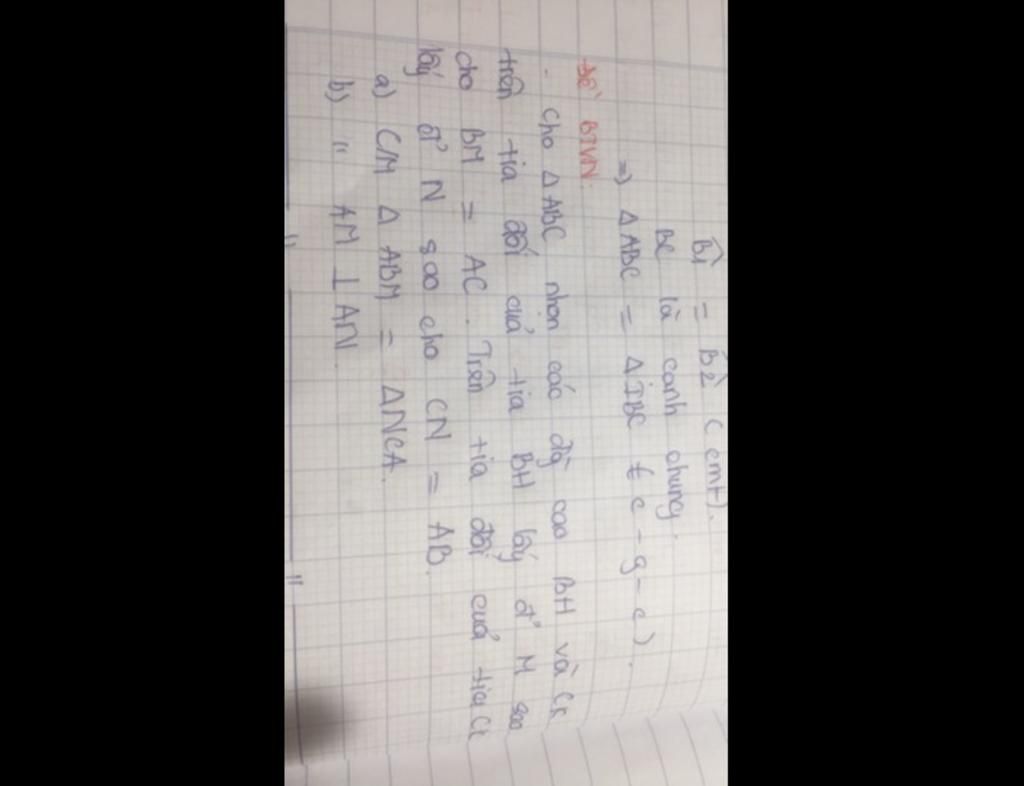 B̂1 = B̂2 (cmt).
BC là cạnh chung.
=) Δ ABC = Δ IBC ( c - g - c ).
Đề BTVN:
. Cho Δ ABC nhọn các đg cao BH và CK
trên tia đối của tia BH lấy đ' M sao
cho BM = AC. Trên tia đối của tia CK
lấy đ' N sao cho CN = AB.
a) C/M Δ ABM = Δ NCA.
b) " AM ⊥ AN.